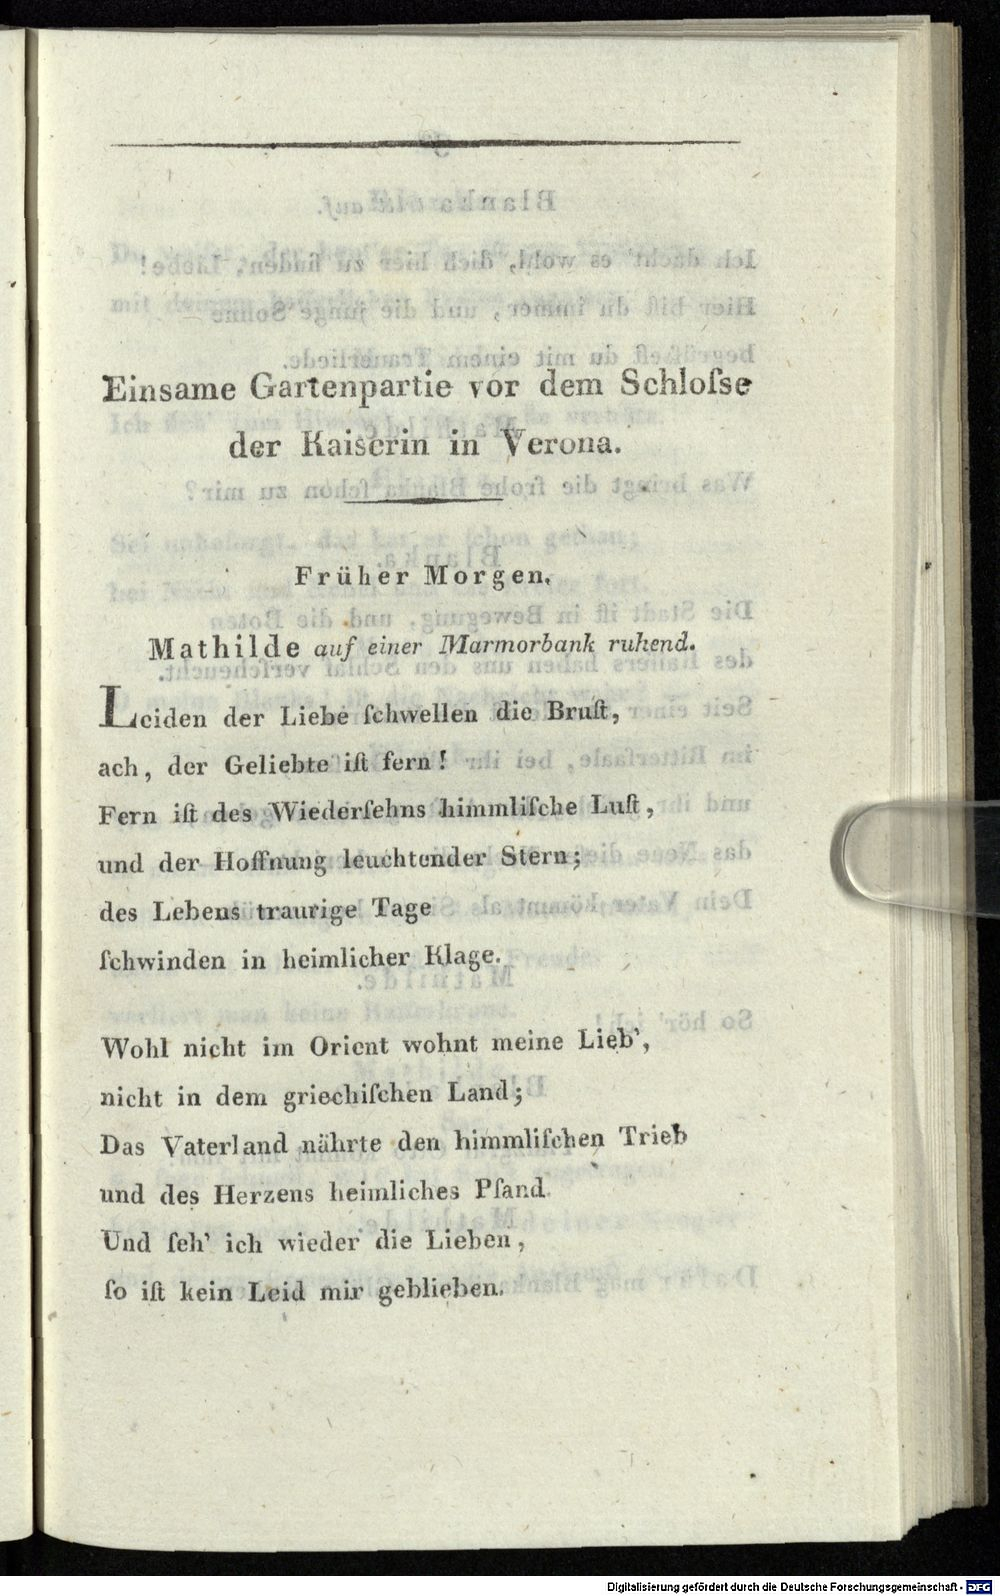 Einsame Gartenpartie vor dem Schloſse
der Kaiserin in Verona.
Früher Morgen.
Mathilde auf einer Marmorbank ruhend.
Leiden der Liebe ſchwellen die Bruſt,
ach, der Geliebte iſt fern!
Fern iſt des Wiederſehns himmliſche Luſt,
und der Hoffnung leuchtender Stern;
des Lebens traurige Tage
ſchwinden in heimlicher Klage.
Wohl nicht im Orient wohnt meine Lieb',
nicht in dem griechiſchen Land;
Das Vaterland nährte den himmliſchen Trieb
und des Herzens heimliches Pfand
Und ſeh' ich wieder die Lieben,
ſo iſt kein Leid mir geblieben.
Digitalisierung gefördert durch die Deutsche Forschungsgemeinschaft - DFG